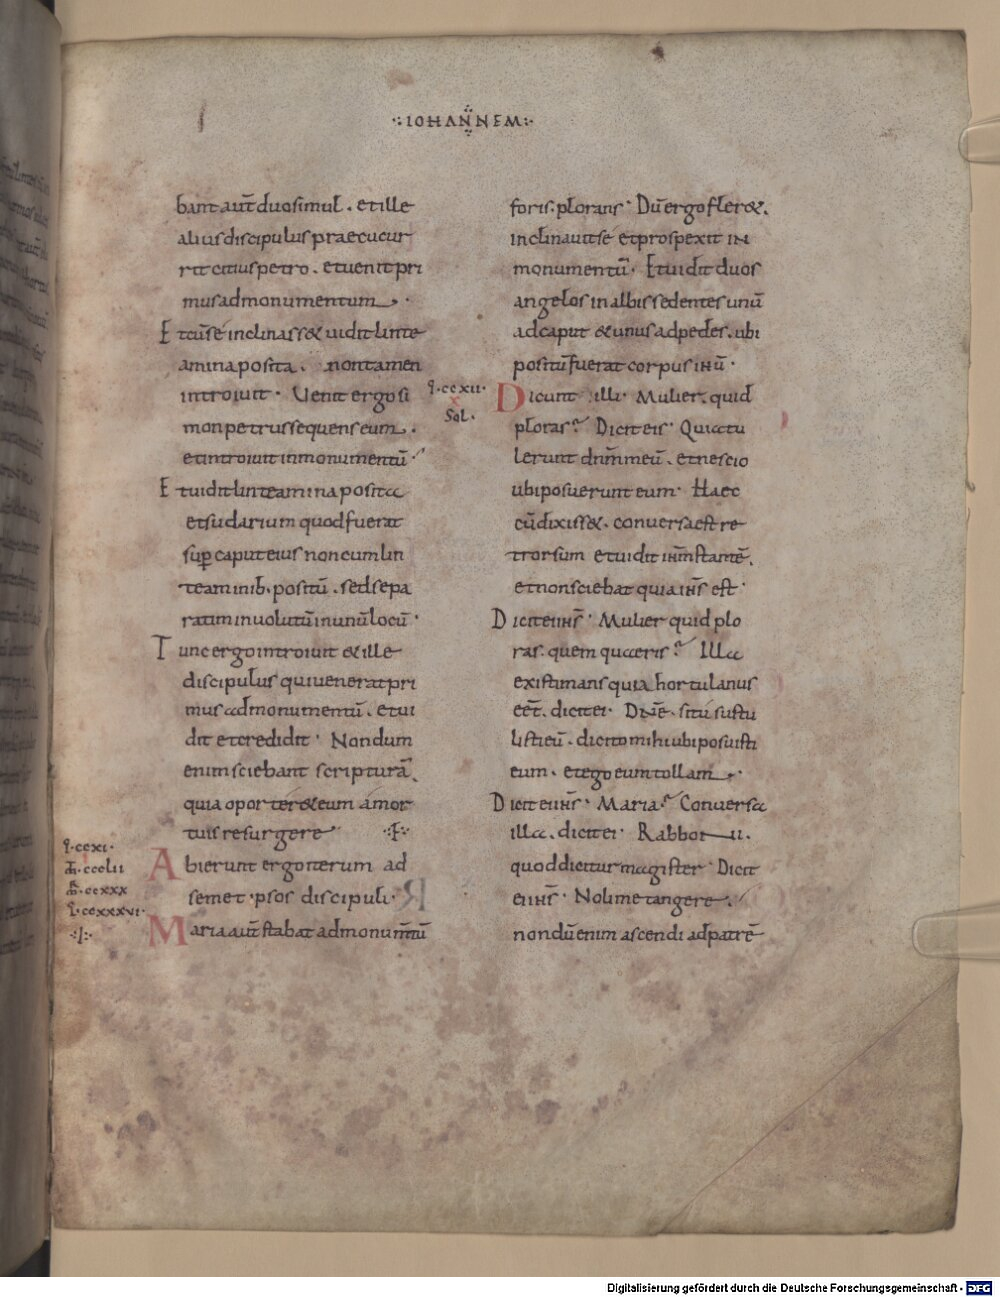 ·:IOHANNEM:·
bant aut̄ duo simul. et ille
alius discipulus praecucur
rit citius petro. et uenit pri
mus ad monumentum.
Et cū se inclinass& uidit linte
amina posita. non tamen
introiuit. Uenit ergo si
mon petrus sequens eum.
et introiuit in monumentū.
Et uidit linteamina posita
et sudarium quod fuerat
sup̱ caput eius non cum lin
teaminib. positū. sed sepa
ratim inuolutū in unū locū.
Tunc ergo introiuit & ille
discipulus qui uenerat pri
mus ad monumentū. et ui
dit et credidit. Nondum
enim sciebant scripturā.
quia oporter&eum amor
tuis resurgere
q.ccxi.
ccclii
ccxxx
L.ccxxxvi.
·I·
Abierunt ergo iterum ad
semet ipsos discipuli.
Maria aut̄ stabat ad monum̄tū
foris plorans. Dū ergo fler&.
inclinauit se et prospexit in
monumentū. Et uidit duos
angelos in albis sedentes unū
ad caput & unus ad pedes. ubi
positū fuerat corpus ihū.
q.ccxii.
x
Sol.
Dicunt illi. Mulier. quid
ploras? Dicit eis. Quia tu
lerunt dnm meū. et nescio
ubi posuerunt eum. Haec
cū dixiss&. conuersa est re
trorsum et uidit ihm stantē.
et non sciebat quia ihs est.
Dicit ei ihs. Mulier quid plo
ras. quem quaeris? Illa
existimans quia hortulanus
eēt. dicit ei. Dnē. si tu sustu
listi eū. dicito mihi ubi posuisti
eum. et ego eum tollam.
Dicit ei ihs. Maria. Conuersa
illa. dicit ei. Rabboni.
quod dicitur magister. Dicit
ei ihs. Noli me tangere.
nondū enim ascendi ad patrē
Digitalisierung gefördert durch die Deutsche Forschungsgemeinschaft - DFG